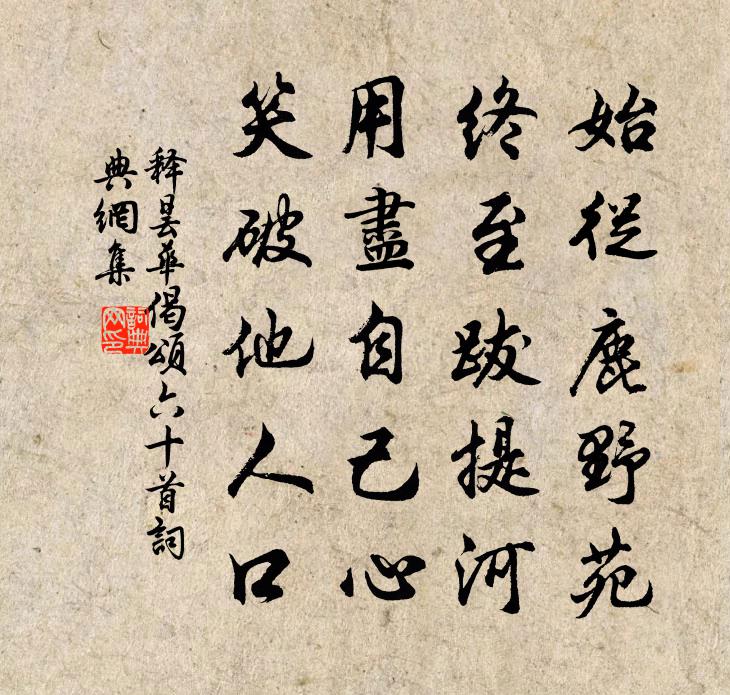 始從鹿野苑
終至跋提河
用盡自己心
笑破他人口
釋曇華偈頌六十首詞
典網集
詞典
网印